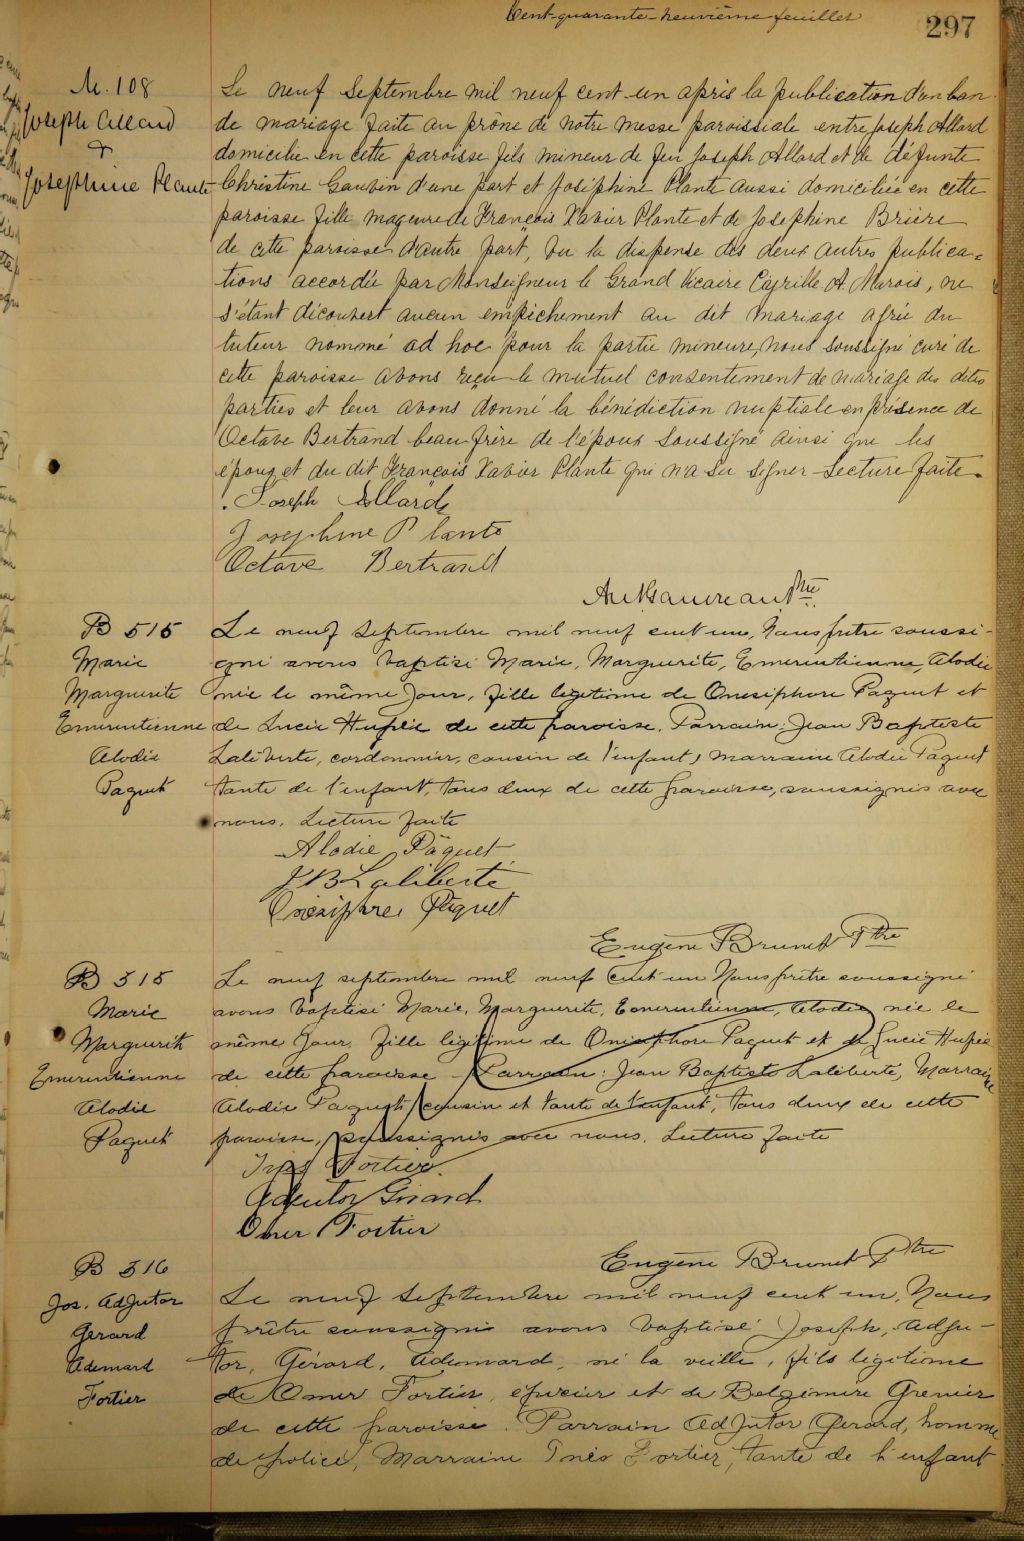 Cent-quarante-neuvième feuillet
297
M. 108
Joseph Allard
&
Josephine Plante
Le neuf Septembre mil neuf cent un après la publication d'un ban
de mariage faite au prône de notre messe paroissiale entre Joseph Allard
domicilié en cette paroisse fils mineur de feu Joseph Allard et de défunte
Christine Gauvin d'une part et Joséphine Plante aussi domiciliée en cette
paroisse fille mageure de François Xavier Plante et de Josephine Brière
de cette paroisse d'autre part, vu la dispense des deux autres publica=
tions accordée par Monseigneur le Grand Vicaire Cyrille A. Marois, ne
s'étant découvert aucun empêchement au dit mariage afrée du
tuteur nommé ad hoc pour la partie mineure, nous soussigné curé de
cette paroisse avons reçu le mutuel consentement de mariage des dites
parties et leur avons donné la bénédiction nuptiale en présence de
Octave Bertrand beau-frère de l'époux soussigné ainsi que les
époux et du dit François Xavier Plante qui n'a su signer - Lecture faite.
Joseph Allard
Josephine Plante
Octave Bertrand
Ptre
B 515
Marie
Marguerite
Emerentienne
Alodie
Paquet
Le neuf Septembre mil neuf cent un, Nous prêtre soussi-
gné avons baptisé Marie, Marguerite, Emerentienne, Alodie
née le même jour, fille légitime de Onesiphore Paquet et
de Lucie Hupée de cette paroisse. Parrain: Jean Baptiste
Laliberté, cordonnier, cousin de l'enfant, marraine Alodie Paquet
tante de l'enfant, tous deux de cette paroisse, soussignés avec
nous. Lecture faite
Alodie Pâquet
J.B Laliberté
Onésiphore Pâquet
Eugène Brunet Ptre
B 515
Marie
Marguerite
Emerentienne
Alodie
Paquet
Le neuf septembre mil neuf cent un Nous prêtre soussigné
avons baptisé Marie, Marguerite, Emerentienne, Alodie née le
même jour, fille légitime de Onesiphore Paquet et de Lucie Hupée
de cette paroisse - Parrain: Jean Baptiste Laliberté, Marraine
Alodie Paquet, cousin et tante de l'enfant, tous deux de cette
paroisse, soussignés avec nous. Lecture faite
Inès Fortier
Adjutor Girard
Omer Fortier
Eugène Brunet Ptre
B 516
Jos. Adjutor
Gerard
Ademard
Fortier
Le neuf Septembre mil neuf cent un, Nous
prêtre soussigné avons baptisé Joseph, Adju-
tor, Gérard, Ademard, né la veille, fils légitime
de Omer Fortier, épicier et de Belzémire Grenier
de cette paroisse. Parrain Adjutor Gerard, homme
de police, Marraine Inès Fortier, tante de l'enfant